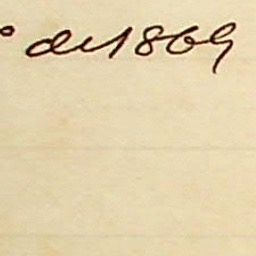 de 1869